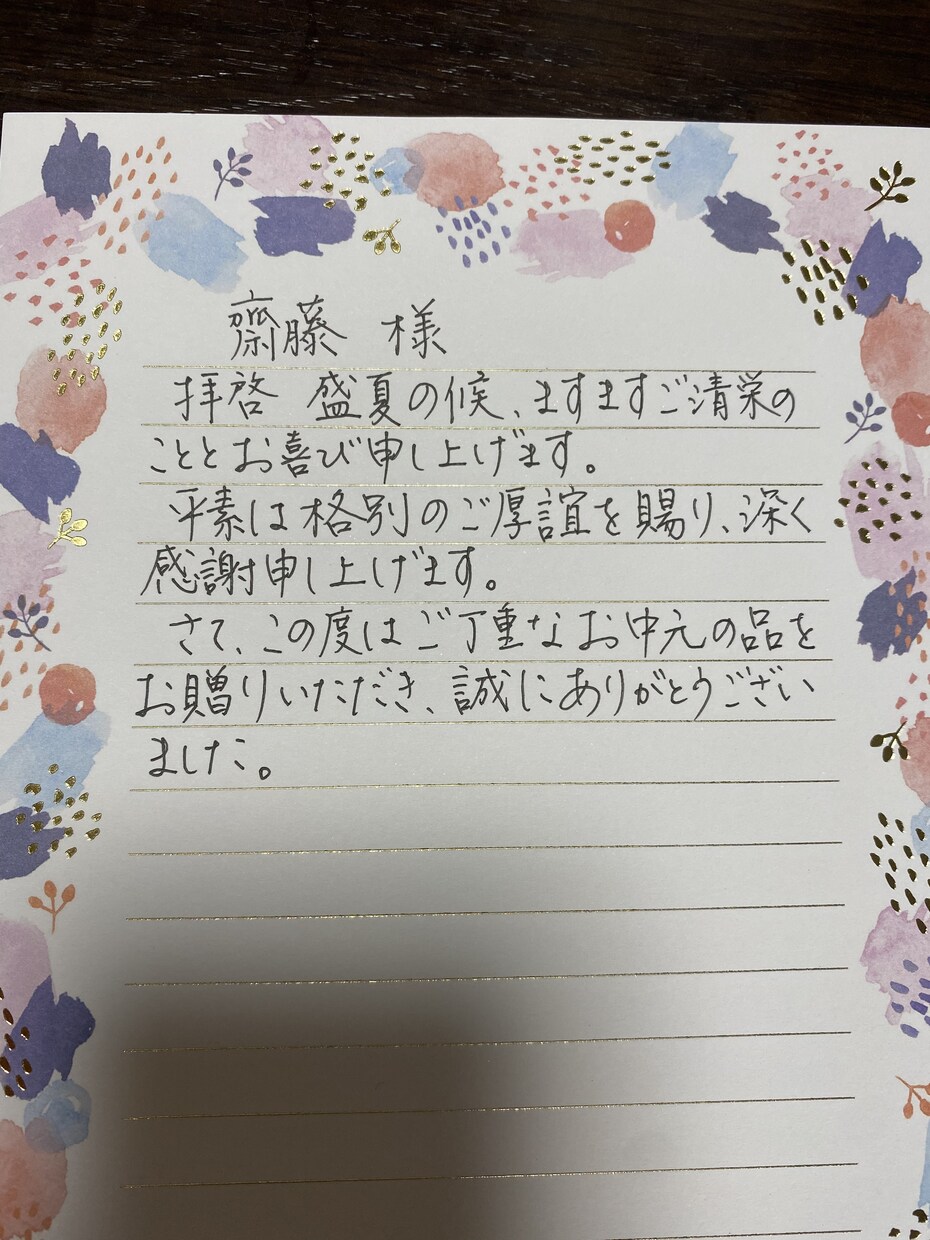 齋藤 様
拝啓 盛夏の候、ますますご清栄の
こととお喜び申し上げます。
平素は格別のご厚誼を賜り、深く
感謝申し上げます。
さて、この度はご丁重なお中元の品を
お贈りいただき、誠にありがとうござい
ました。